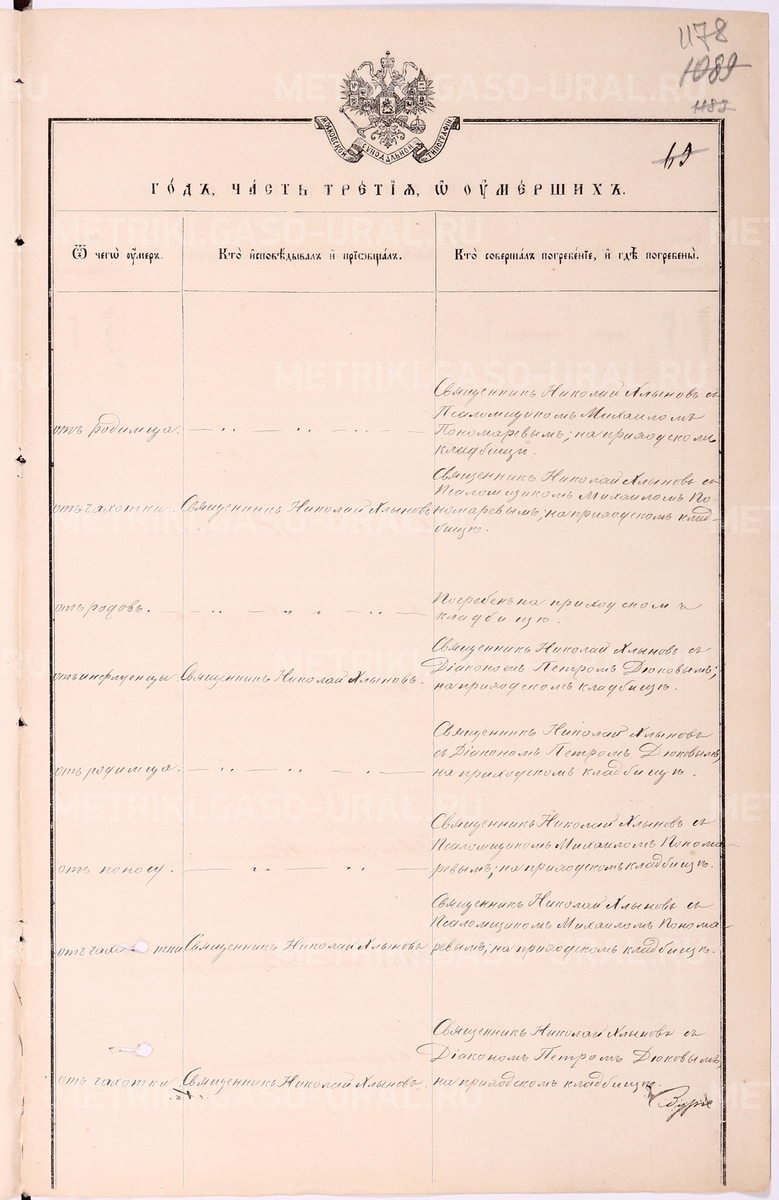 1178
1089
1183
METRIKI.GASO-URAL.RU
МОСКОВСКОЙ СѴНОДАЛЬНОЙ ТИПОГРАФІИ
го́дъ, ча́сть тре́тїѧ, ѡ҆ ᲂу҆ме́ршихъ.
Ѿ чегѡ̀ ᲂу҆́меръ.
Кто̀ и҆сповѣ́дывалъ и҆ прїѡбща́лъ.
Кто̀ соверша́лъ погребе́нїе, и҆ гдѣ̀ погребены̀.
отъ родимца.
Священникъ Николай Хлыновъ съ
Псаломщикомъ Михаиломъ
Пономаревымъ; на приходскомъ
кладбищѣ.
отъ чахотки.
Священникъ Николай Хлыновъ
Священникъ Николай Хлыновъ съ
Псаломщикомъ Михаиломъ По-
номаревымъ; на приходскомъ клад-
бищѣ.
отъ родовъ.
Погребенъ на приходскомъ
кладбищѣ.
отъ инфлуенцы
Священникъ Николай Хлыновъ.
Священникъ Николай Хлыновъ съ
Діакономъ Петромъ Дюковымъ;
на приходскомъ кладбищѣ.
отъ родимца.
Священникъ Николай Хлыновъ
съ Діакономъ Петромъ Дюковымъ,
на приходскомъ кладбищѣ.
отъ поносу.
Священникъ Николай Хлыновъ съ
Псаломщикомъ Михаиломъ Понома-
ревымъ; на приходскомъ кладбищѣ.
отъ чахотки
Священникъ Николай Хлыновъ
Священникъ Николай Хлыновъ съ
Псаломщикомъ Михаиломъ Понома-
ревымъ; на приходскомъ кладбищѣ.
отъ чахотки
Священникъ Николай Хлыновъ.
Священникъ Николай Хлыновъ съ
Діакономъ Петромъ Дюковымъ,
на приходскомъ кладбищѣ.